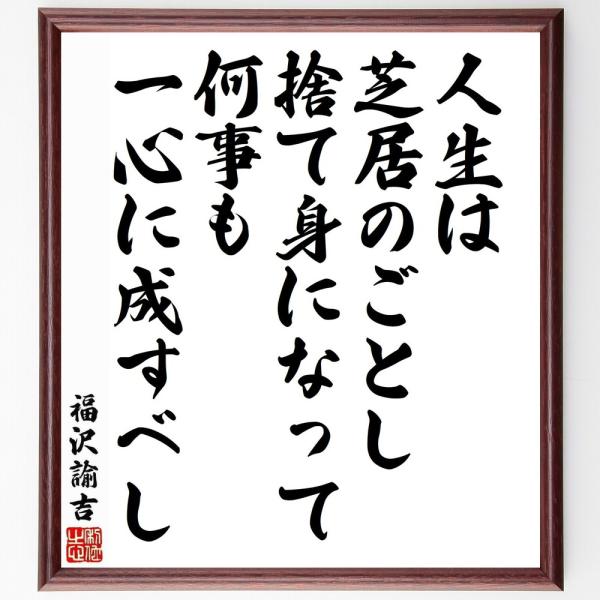 人生は
芝居のごとし
捨て身になって
何事も
一心に成すべし
福沢諭吉